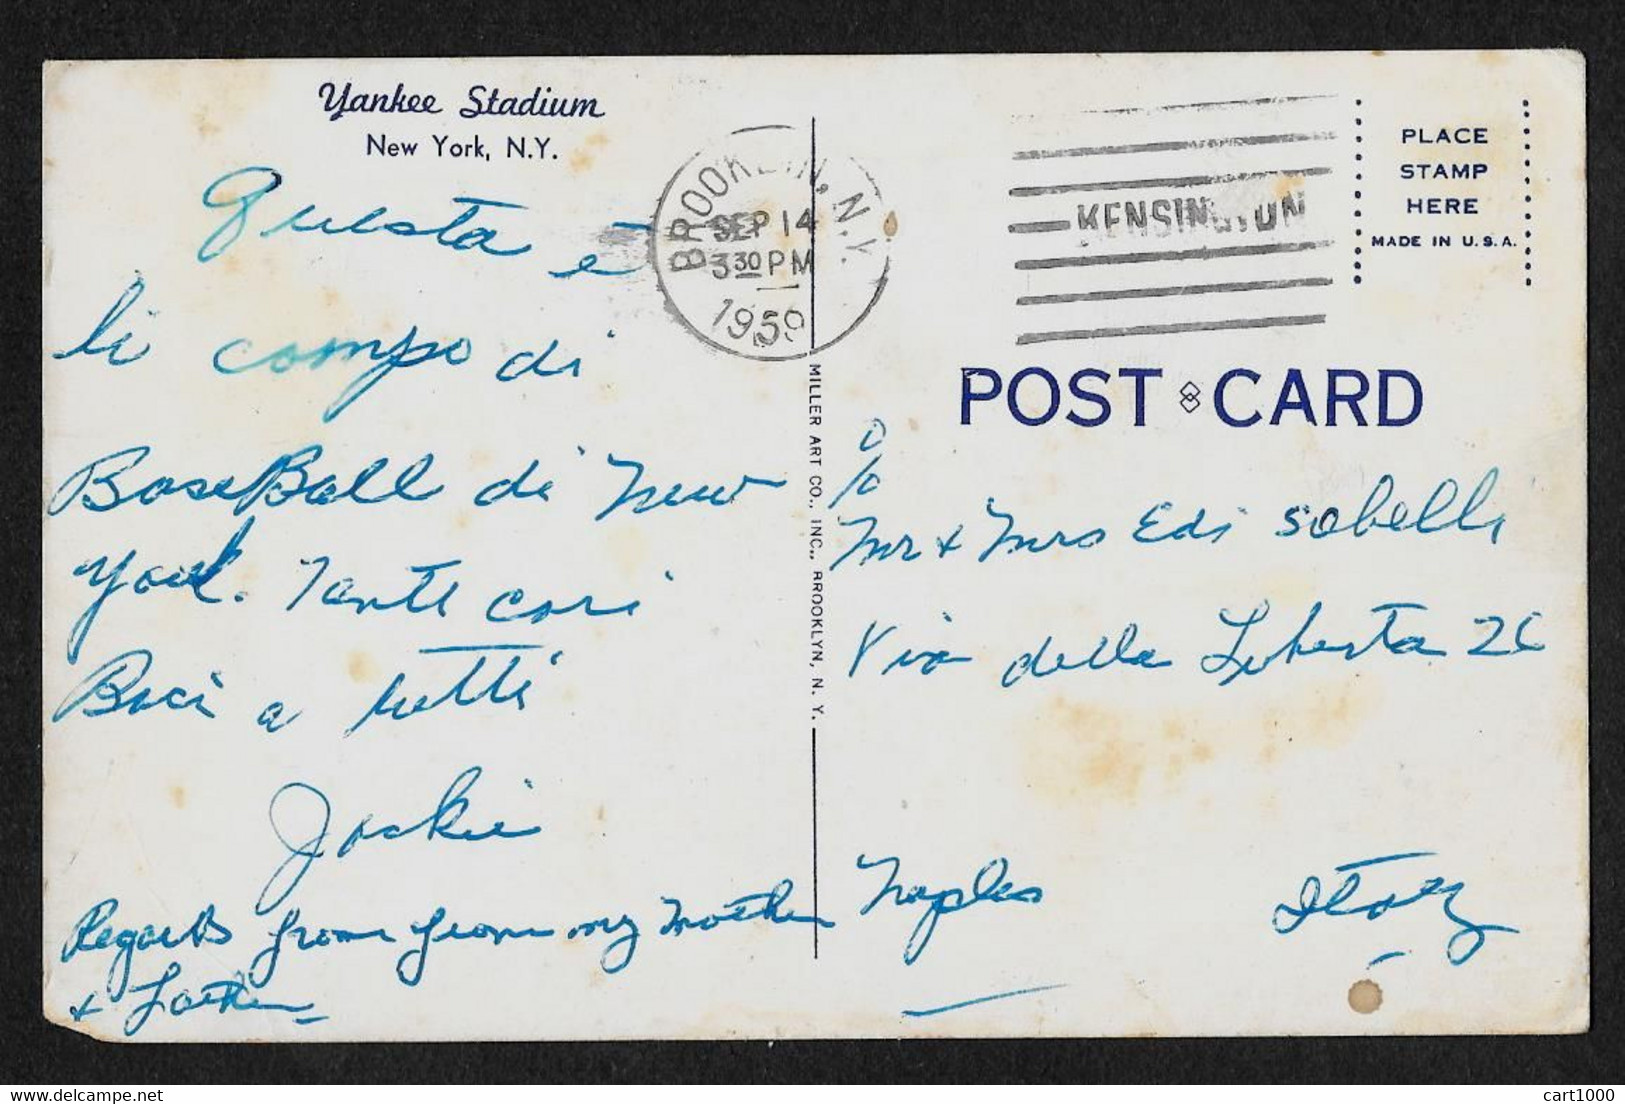 Yankee Stadium
New York, N.Y.
Questa e
li campo di
BaseBall di New
York. Tante cari
Baci a tutti
Jackie
Regards from from my Mother
+ Father
BROOKLYN, N.Y.
SEP 14
3 30 PM
1959
KENSINGTON
MILLER ART CO., INC., BROOKLYN, N. Y.
PLACE
STAMP
HERE
MADE IN U.S.A.
POST CARD
Mr + Mrs Edi Sabelli
Via della Liberta 26
Naples Italy
cart1000